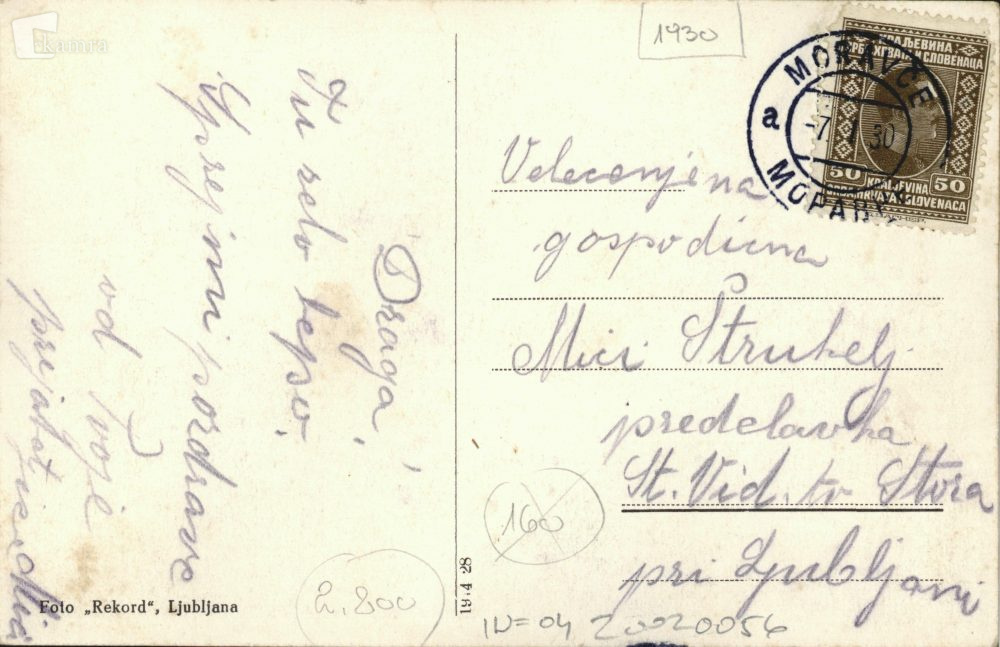 kamra
1930
КРАЉЕВИНА
СРБА ХРВАТА И СЛОВЕНАЦА
50 KRALJEVINA 50
SRBA HRVATA I SLOVENACA
MORAVČE
a
-7. 30
МОРАВЧЕ
Draga!
Tu zelo lepo.
Sprejmi pozdrave
od Tvoje
prijateljice Mici
Velecenjena
gospodična
Mici Štrukelj
predelavka
St. Vid. tv Stora
pri Ljubljani
160
2.800
19·4 28
Foto „Rekord“, Ljubljana
IN=04 Z0020056